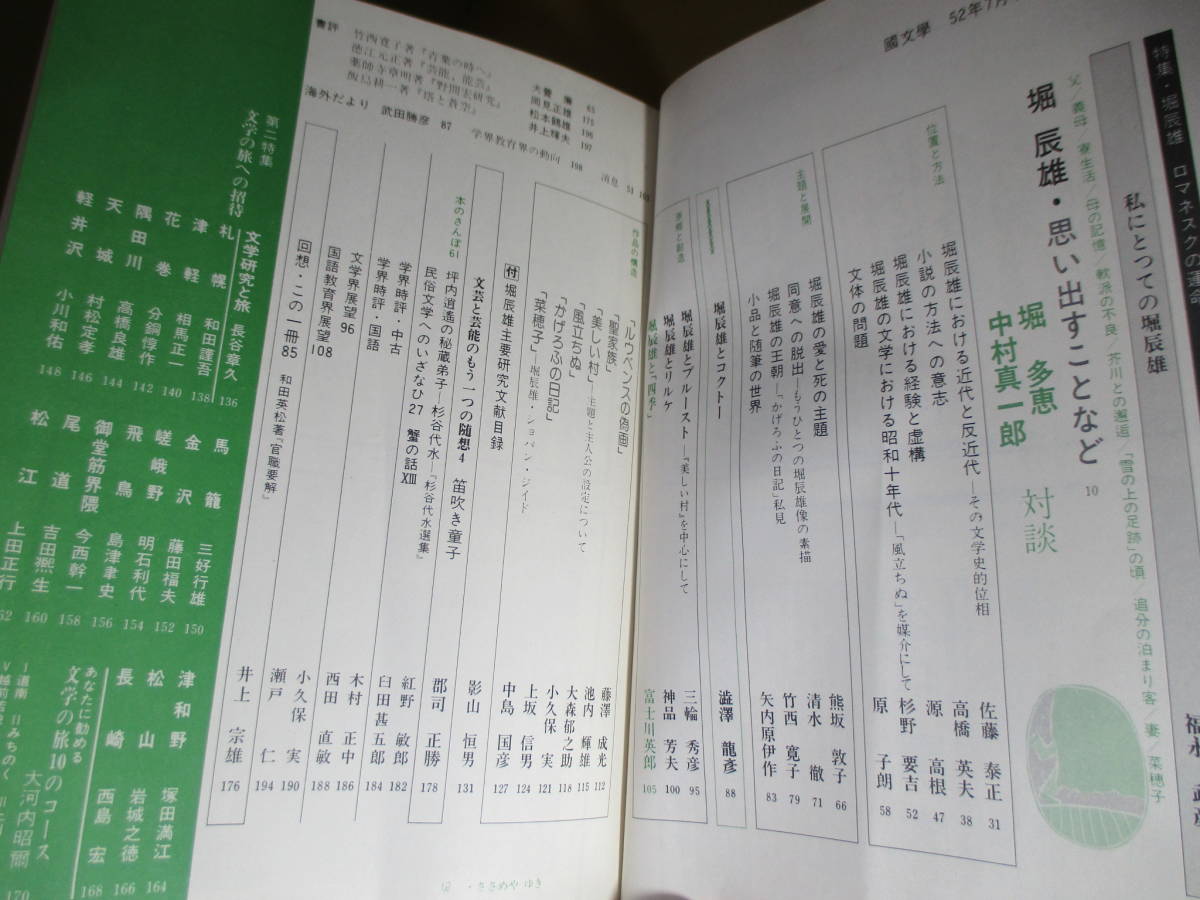 國文學 52年7月
特集・堀辰雄 ロマネスクの
私にとっての堀辰雄
福永 武彦
父／義母／寮生活／母の記憶／軟派の不良／芥川との邂逅／「雪の上の足跡」の頃／追分の泊まり客／妻／菜穂子
堀 辰雄・思い出すことなど 10
堀 多恵
中村真一郎
対談
位置と方法
堀辰雄における近代と反近代―その文学史的位相 佐藤 泰正 31
小説の方法への意志 高橋 英夫 38
堀辰雄における経験と虚構 源 高根 47
堀辰雄の文学における昭和十年代―「風立ちぬ」を媒介にして 杉野 要吉 52
文体の問題 原 子朗 58
主題と展開
堀辰雄の愛と死の主題 熊坂 敦子 66
同意への脱出―もうひとつの堀辰雄像の素描 清水 徹 71
堀辰雄の王朝―「かげろふの日記」私見 竹西 寛子 79
小品と随筆の世界 矢内原伊作 83
堀辰雄とコクトー 澁澤 龍彦 88
堀辰雄とプルースト―「美しい村」を中心にして 三輪 秀彦 95
堀辰雄とリルケ 神品 芳夫 100
堀辰雄と「四季」 富士川英郎 105
作品の構造
「ルウベンスの偽画」 藤澤 成光 112
「聖家族」 池内 輝雄 115
「美しい村」―主題と主人公の設定について 大森郁之助 118
「風立ちぬ」 小久保 実 121
「かげろふの日記」 上坂 信男 124
「菜穂子」―堀辰雄・ショパン・ジイド 中島 国彦 127
付 堀辰雄主要研究文献目録
文芸と芸能のもう一つの随想4 笛吹き童子 影山 恒男 131
本のさんぽ61
坪内逍遙の秘蔵弟子―杉谷代水―『杉谷代水選集』
民俗文学へのいざなひ27 蟹の話XIII 郡司 正勝 178
学界時評・中古 紅野 敏郎 182
学界時評・国語 臼田 甚五郎 184
文学界展望 96 木村 正中 186
国語教育界展望 108 西田 直敏 188
小久保 実 190
瀬戸 仁 194
回想・この一冊 85 和田英松著『官職要解』 井上 宗雄 176
書評
竹西寛子著『古集の時へ』
徳江元正著『芸能、能芸』 岡見正雄 175
薬師寺章明著『野間宏研究』 松本鶴雄 196
飯島耕一著『塔と蒼空』 井上輝夫 197
海外だより 武田勝彦 87
学界教育界の動向 198
消息
第二特集
文学の旅への招待
文学研究と旅 長谷章久 136
札幌 和田謹吾 138
津軽 相馬正一 140
花巻 分銅惇作 142
隅田川 高橋良雄 144
天城 村松定孝 146
軽井沢 小川和佑 148
馬籠 三好行雄 150
金沢 藤田福夫 152
嵯峨野 明石利代 154
飛鳥 島津聿史 156
御堂筋界隈 今西幹一 158
尾道 吉田熈生 160
松江 上田正行
津和野 塚田満江 164
松山 岩城之徳 166
長崎 西島 宏 168
あなたに勧める
文学の旅10のコース 大河内昭爾 170
I道南 IIみちのく
V越前若狭
・ささめやゆき